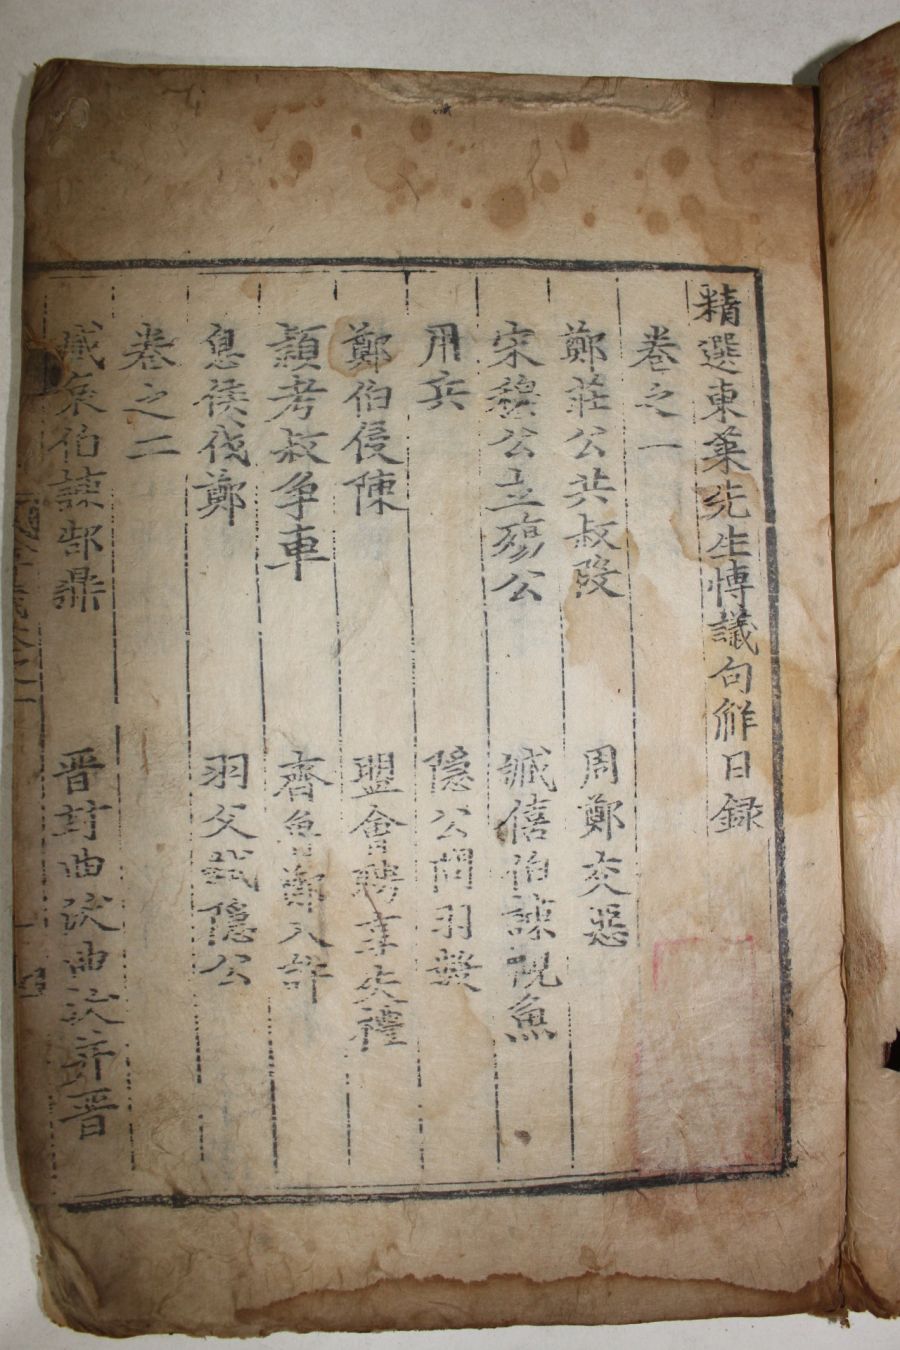 精選東萊先生博議句觧目録
卷之一
鄭莊公共叔段
周鄭交惡
宋穆公立殤公
臧僖伯諫觀魚
用兵
隱公問羽數
鄭伯侵陳
盟會聘享失禮
頴考叔争車
齊魯鄭入許
息侯伐鄭
羽父弑隱公
卷之二
臧哀伯諫郜鼎
晋封曲沃曲沃并晋